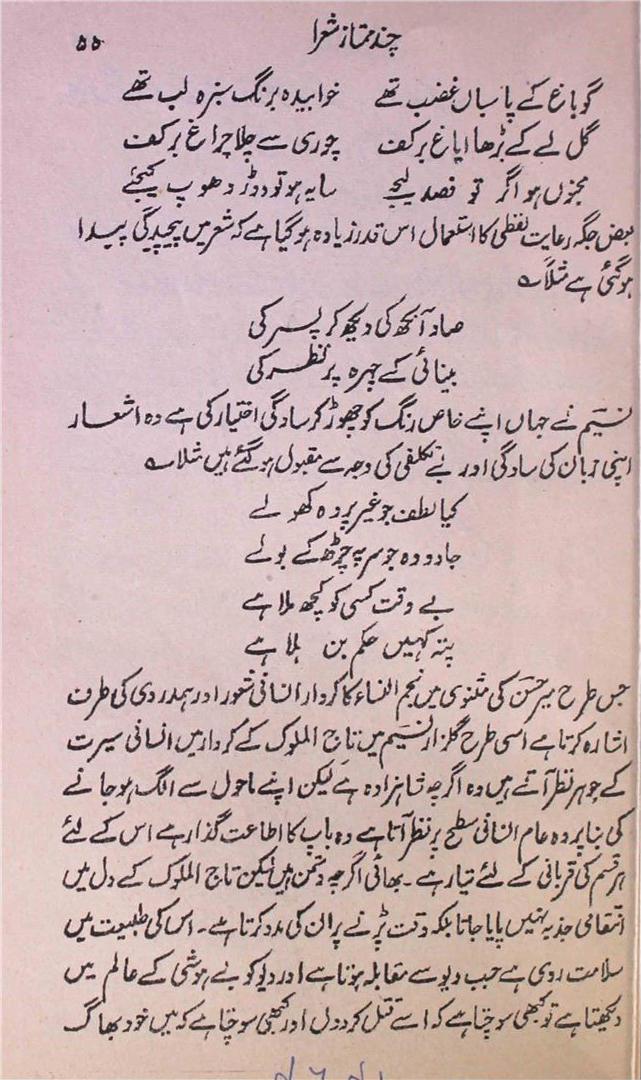 چند ممتاز شعرا ۵۵
گو باغ کے پاسباں غضب تھے خوابیدہ برنگ سبزہ لب تھے
گل لے کے بڑھا ایاغ برکف چوری سے چلا چراغ برکف
مجنوں ہو اگر تو فصد لیجے سایہ ہو تو دوڑ دھوپ کیجئے
بعض جگہ رعایت لفظی کا استعمال اس قدر زیادہ ہوگیا ہے کہ شعر میں پیچیدگی پیدا
ہوگئی ہے مثلاً ؎
صاد آنکھ کی دیکھ کر پسر کی
بینائی کے چہرہ پر نظر کی
نسیمؔ نے جہاں اپنے خاص رنگ کو چھوڑ کر سادگی اختیار کی ہے وہ اشعار
اپنی زبان کی سادگی اور بے تکلفی کی وجہ سے مقبول ہوگئے ہیں مثلاً ؎
کیا لطف جو غیر پردہ کھولے
جادو وہ جو سر پہ چڑھ کے بولے
بے وقت کسی کو کچھ ملا ہے
پتہ کہیں حکم بن ہلا ہے
جس طرح میر حسنؔ کی مثنوی میں نجم النساء کا کردار انسانی شعور اور ہمدردی کی طرف
اشارہ کرتا ہے اسی طرح گلزار نسیمؔ میں تاج الملوک کے کردار میں انسانی سیرت
کے جوہر نظر آتے ہیں وہ اگرچہ شاہزادہ ہے لیکن اپنے ماحول سے الگ ہوجانے
کی بنا پر وہ عام انسانی سطح پر نظر آتا ہے وہ باپ کا اطاعت گذار ہے اس کے لئے
ہر قسم کی قربانی کے لئے تیار ہے۔ بھائی اگرچہ دشمن ہیں لیکن تاج الملوک کے دل میں
انتقامی جذبہ نہیں پایا جاتا بلکہ وقت پڑنے پر ان کی مدد کرتا ہے۔ اس کی طبیعت میں
سلامت روی ہے جب دیو سے مقابلہ ہوتا ہے اور دیو کو بے ہوشی کے عالم میں
دیکھتا ہے تو کبھی سوچتا ہے کہ اسے قتل کردوں اور کبھی سوچتا ہے کہ میں خود بھاگ